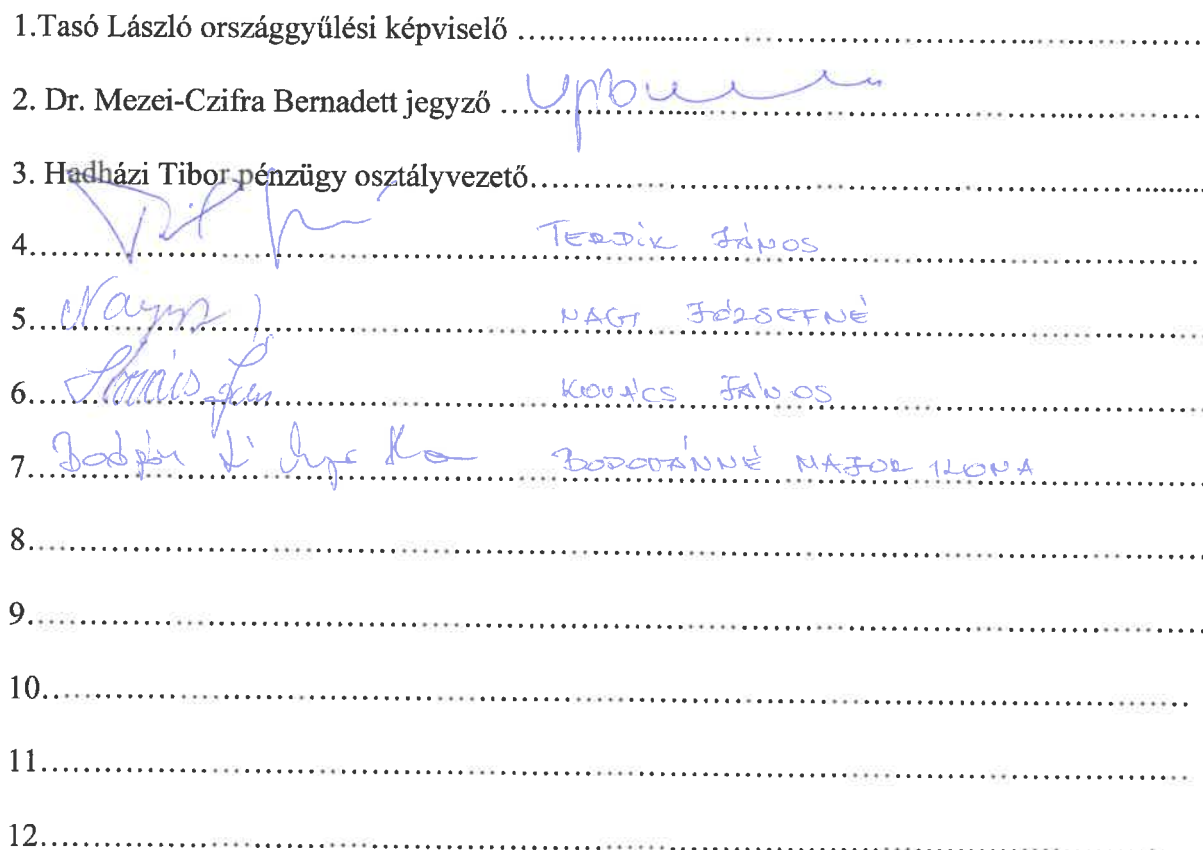 1.Tasó László országgyűlési képviselő ..............................
2. Dr. Mezei-Czifra Bernadett jegyző ..............................
3. Hadházi Tibor pénzügy osztályvezető..............................
4.............................. TERDIK JÁNOS
5.............................. NAGY JÓZSEFNÉ
6. Kovács János KOVÁCS JÁNOS
7.............................. BODOVÁNNÉ MAJOR ILONA
8..............................
9..............................
10..............................
11..............................
12..............................